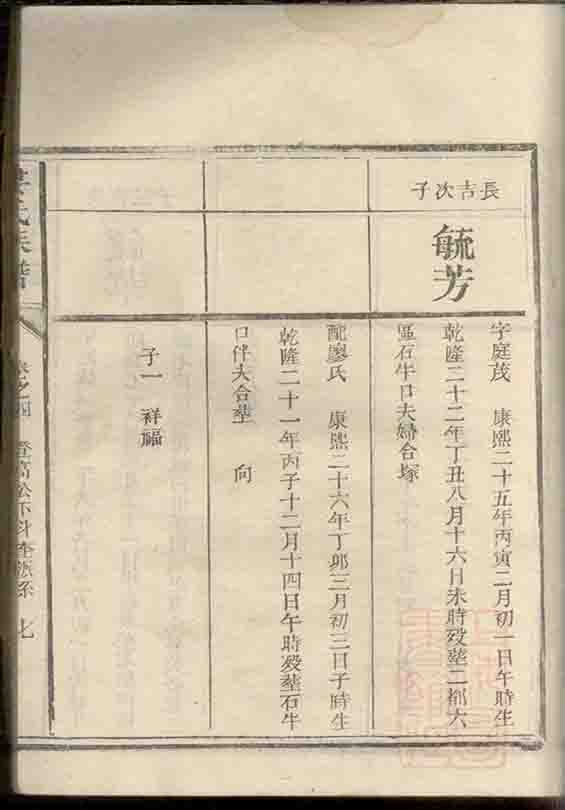 長吉次子
毓芳
字庭茂 康熙二十五年丙寅二月初一日午時生
乾隆二十二年丁丑八月十六日未時殁塟二都六
區石牛口夫婦合塚
配廖氏 康熙二十六年丁卯三月初三日子時生
乾隆二十一年丙子十二月十四日午時殁塟石牛
口伴夫合塟 向
子一 祥福
氏族譜
卷之四